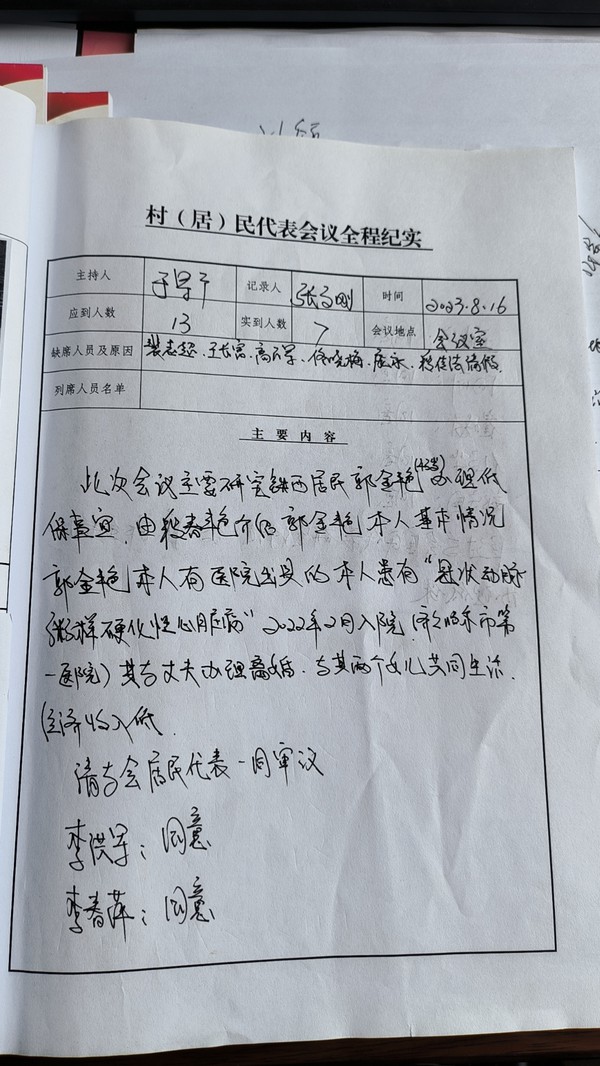 村（居）民代表会议全程纪实
主持人 记录人 时间 2023.8.16
应到人数 13 实到人数 7 会议地点 会议室
缺席人员及原因
列席人员名单
主要内容
此次会议主要研究铁西居民郭金艳(42岁)办理低
保事宜，由 春艳介绍郭金艳本人基本情况
郭金艳本人有医院出具的本人患有“冠状动脉
粥样硬化性心脏病”2022年2月入院
一医院）其与丈夫办理离婚．与其两个女儿共同生活．
经济收入低．
请与会居民代表一同审议
李洪军：同意
李春萍：同意